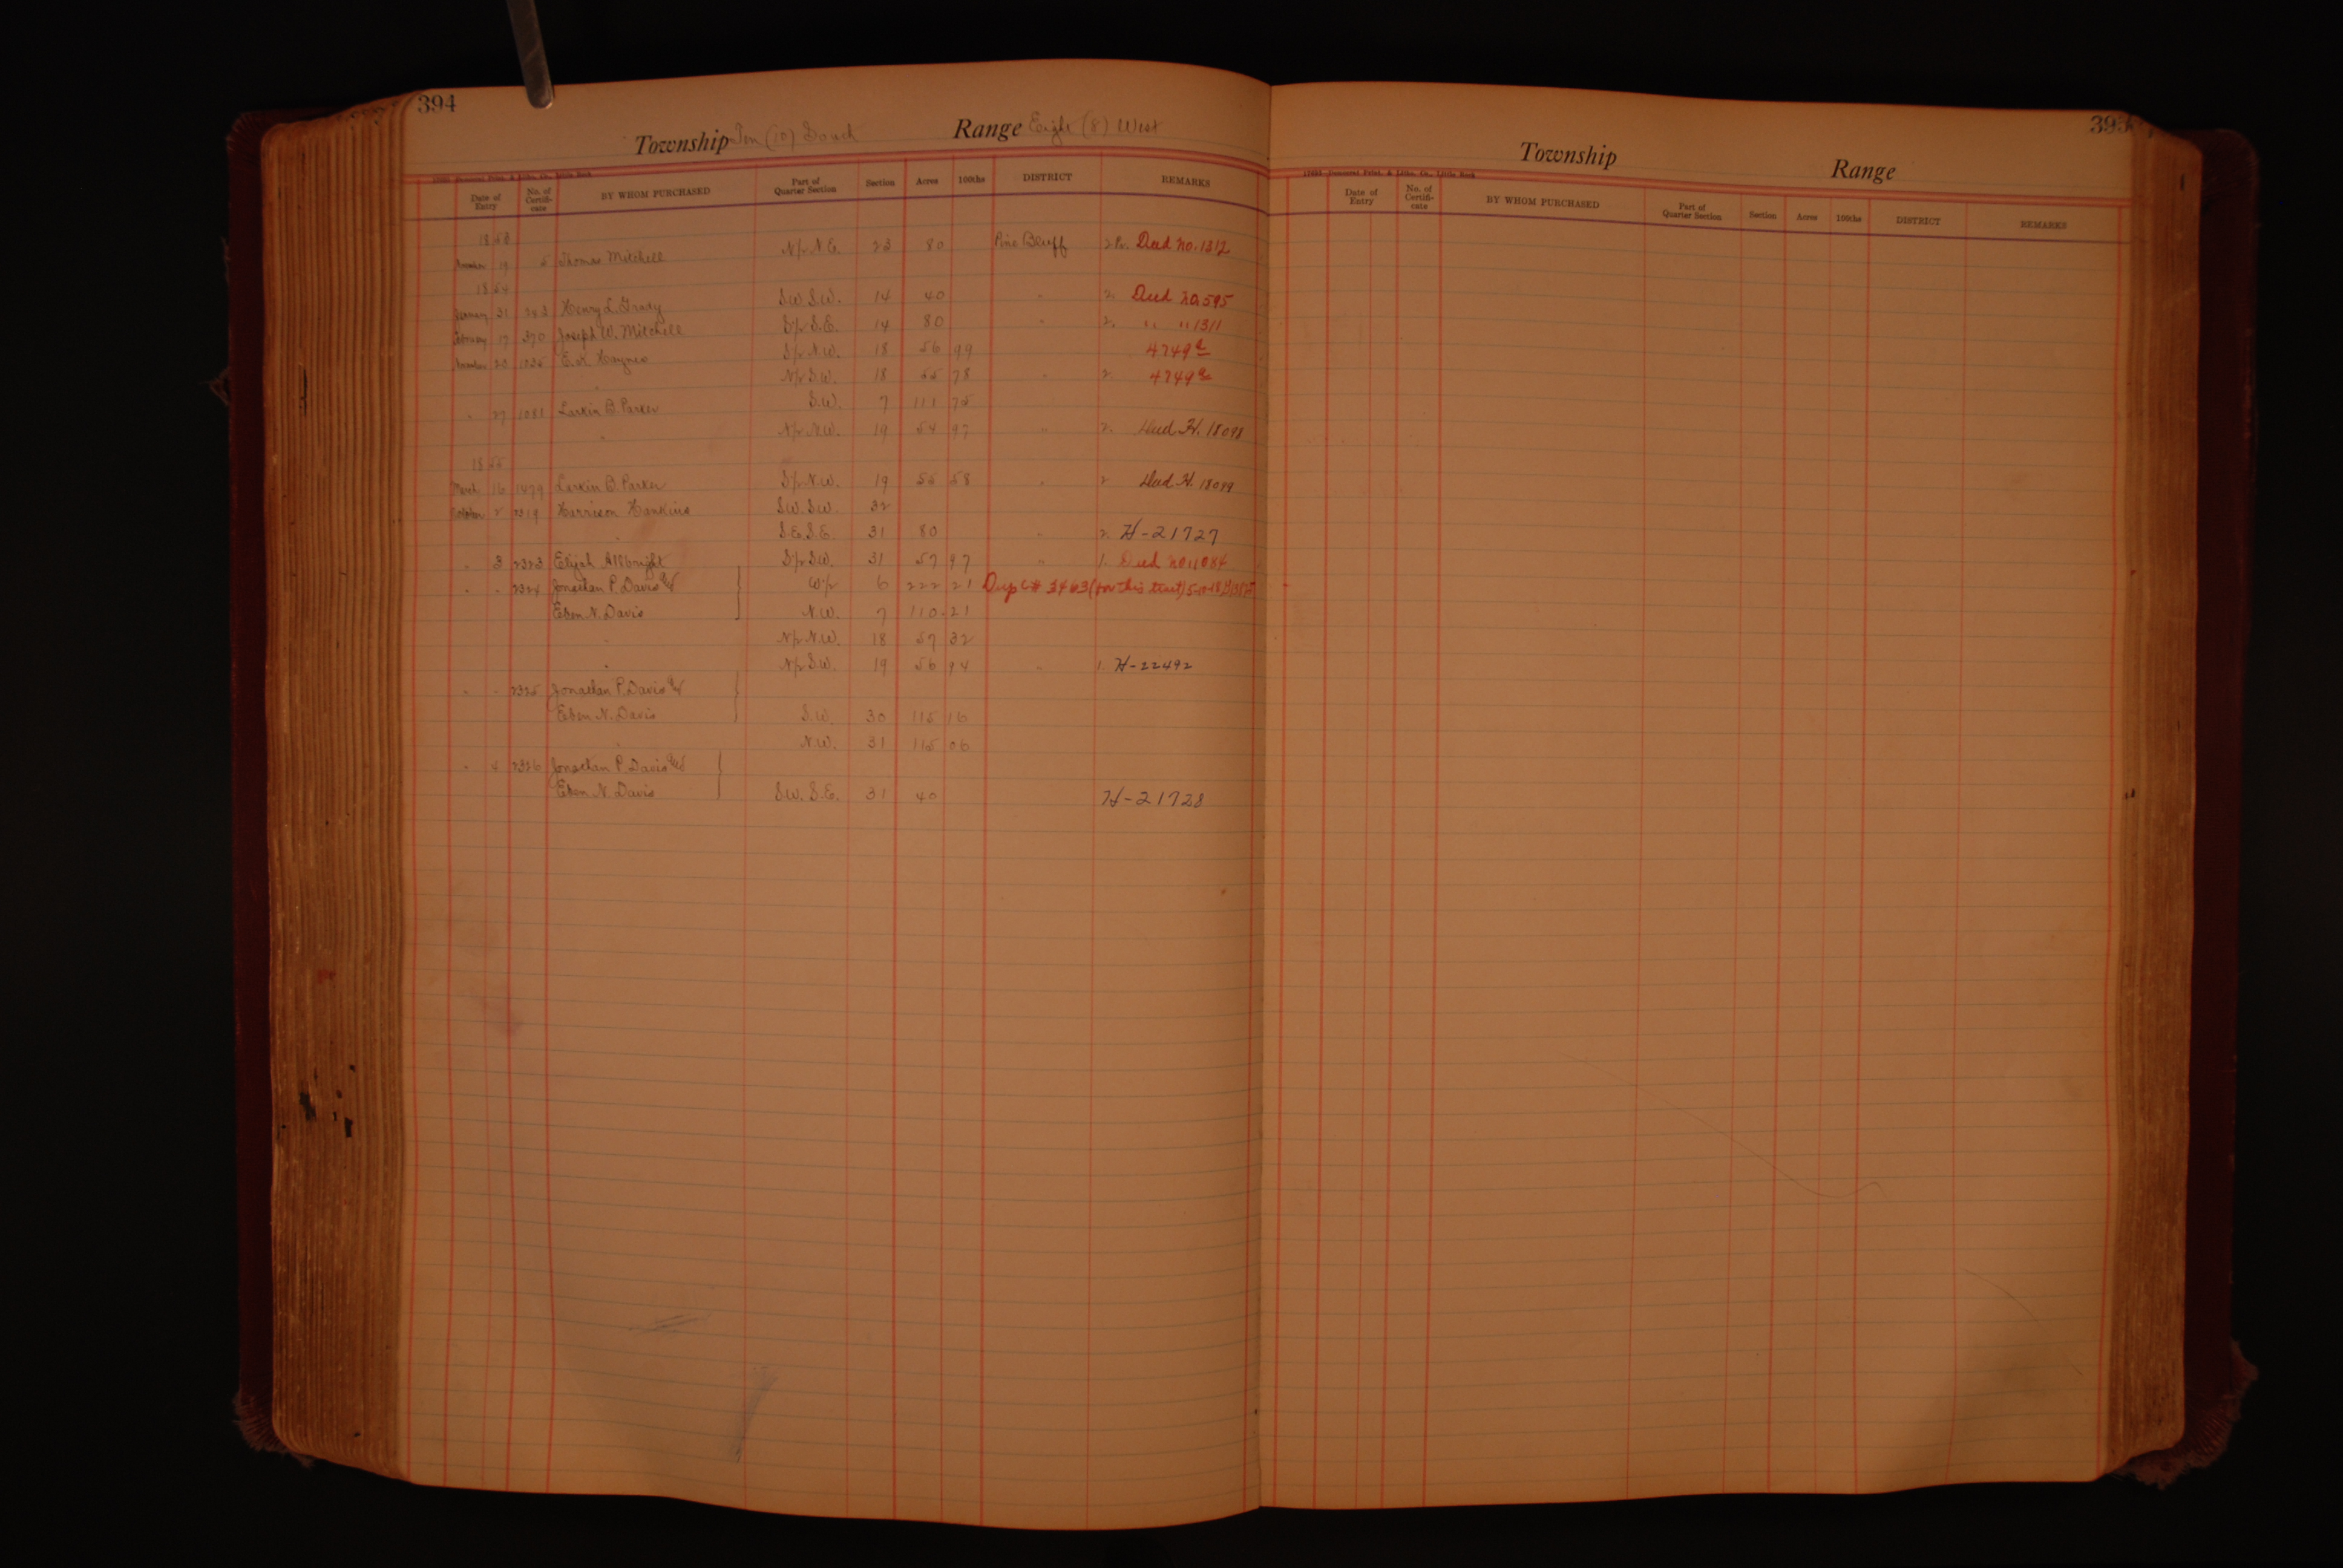 394
Township Ten (10) South Range Eight (8) West
Date of Entry No. of Certifi-cate BY WHOM PURCHASED Part of Quarter Section Section Acres 100ths DISTRICT REMARKS
1853
November 19 5 Thomas Mitchell N½ N.E. 23 80 Pine Bluff Deed No. 1312
1854
January 31 Henry L. Grady S.W. S.W. 14 40 " 2. Deed No. 595
February 17 370 Joseph W. Mitchell S½ S.E. 14 80 " 2. " " 1311
November 20 1035 Haynes S½ N.W. 18 56 99 4749
" N½ S.W. 18 55 78 " 2 4749
" 27 1081 Larkin B. Parker S.W. 7 111 75
" N½ N.W. 19 54 97 " 2. Deed H. 18098
1855
March 16 1479 Larkin B. Parker S½ N.W. 19 55 58 " 2 Deed H. 18099
October 2 2319 Harrison Hankins S.W. S.W. 32
" S.E. S.E. 31 80 " 2. H-21727
" 3 2323 Elijah Allbright S½ S.W. 31 57 97 " 1. Deed No. 11084
" " 2324 Jonathan P. Davis and W½ 6 222 21 Dup C# 3463 (for this tract)
Eben N. Davis N.W. 7 110 21
" N½ N.W. 18 57 32
" N½ S.W. 19 56 94 " 1. H-22492
" " 2325 Jonathan P. Davis and
Eben N. Davis S.W. 30 115 16
" N.W. 31 115 06
" 4 2326 Jonathan P. Davis and
Eben N. Davis S.W. S.E. 31 40 H-21728
395
Township Range
Date of Entry No. of Certifi-cate BY WHOM PURCHASED Part of Quarter Section Section Acres 100ths DISTRICT REMARKS